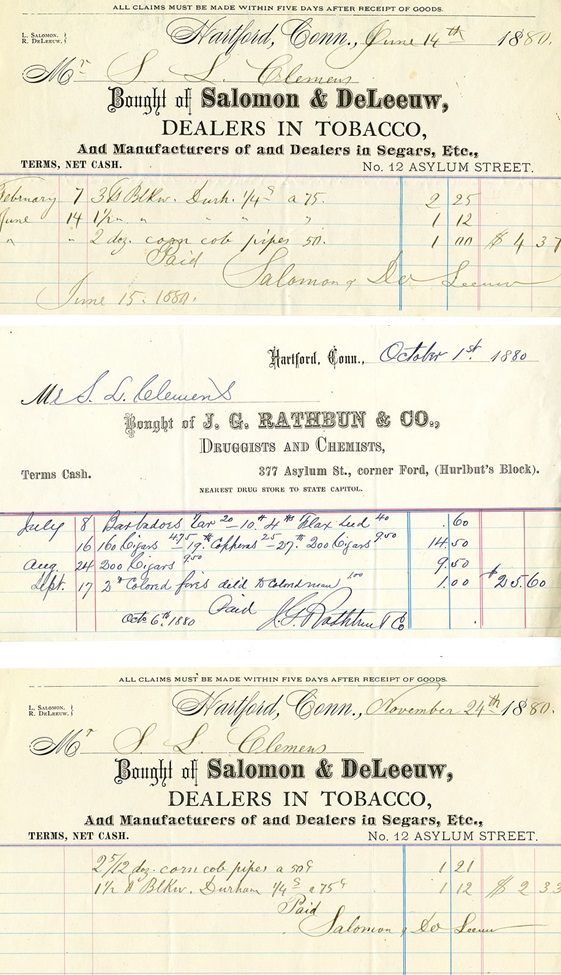 ALL CLAIMS MUST BE MADE WITHIN FIVE DAYS AFTER RECEIPT OF GOODS.
L. SALOMON.
R. DELEEUW.
Hartford, Conn., June 14th 1880.
Mr. S. L. Clemens
Bought of Salomon & DeLeeuw,
DEALERS IN TOBACCO,
And Manufacturers of and Dealers in Segars, Etc.,
TERMS, NET CASH. No. 12 ASYLUM STREET.
February 7 3 # Blkw. Durh. 1/4s a 75. 2 25
June 14 1½ " " " " " 1 12
" " 2 doz. corn cob pipes 50. 1 00 $ 4 37
Paid
Salomon & De Leeuw
June 15. 1880.
Hartford, Conn., October 1st 1880
Mr S. L. Clemens
Bought of J. G. RATHBUN & CO.,
DRUGGISTS AND CHEMISTS,
Terms Cash. 377 Asylum St., corner Ford, (Hurlbut's Block).
NEAREST DRUG STORE TO STATE CAPITOL.
July 8 Barbadoes Tar 20 - 10th 4 #s Flax Seed 40 .60
16 100 Cigars 4.75 - 19th Copperas 25 - 27th 200 Cigars 9.50 14.50
Aug. 24 200 Cigars 9.50 9.50
Sept. 17 2 Colored fires deld to Colored man 1.00 1.00 $25.60
Oct. 6th 1880 Paid J. G. Rathbun & Co
ALL CLAIMS MUST BE MADE WITHIN FIVE DAYS AFTER RECEIPT OF GOODS.
L. SALOMON.
R. DELEEUW.
Hartford, Conn., November 24th 1880.
Mr. S. L. Clemens
Bought of Salomon & DeLeeuw,
DEALERS IN TOBACCO,
And Manufacturers of and Dealers in Segars, Etc.,
TERMS, NET CASH. No. 12 ASYLUM STREET.
2 5/12 doz. corn cob pipes a 50c 1 21
1½ # Blkw. Durham 1/4s a 75c 1 12 $ 2 33
Paid
Salomon & De Leeuw